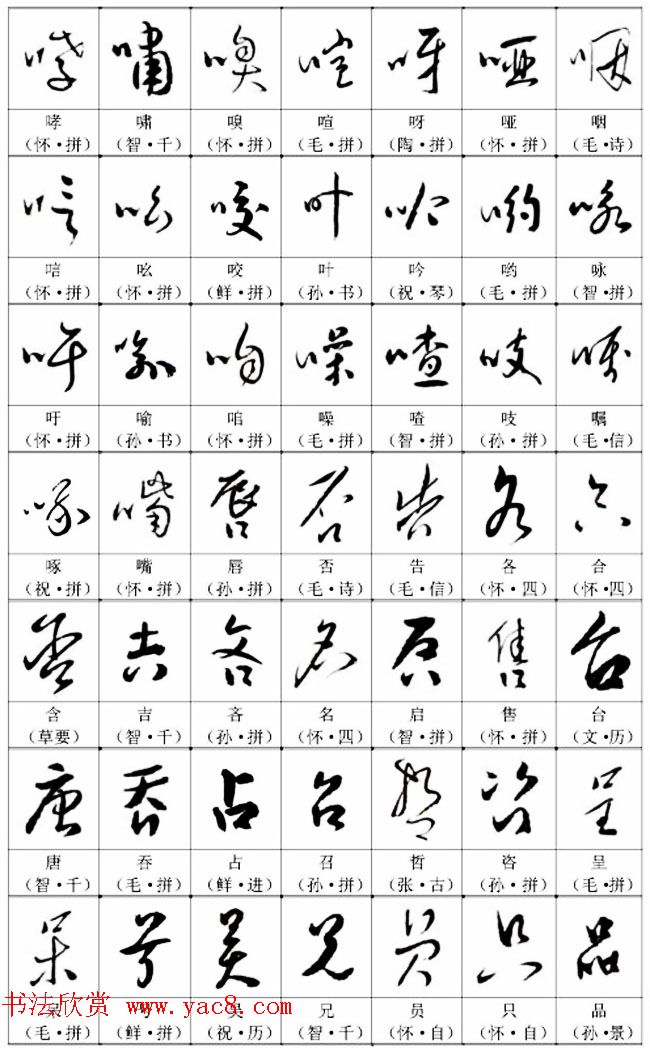 哮 啸 嗅 喧 呀 哑 咽
(怀·拼) (智·千) (怀·拼) (毛·拼) (陶·拼) (怀·拼) (毛·诗)
唁 吆 咬 叶 吟 哟 咏
(怀·拼) (怀·拼) (鲜·拼) (孙·书) (祝·琴) (毛·拼) (智·拼)
吁 喻 咱 噪 喳 吱 嘱
(怀·拼) (孙·书) (怀·拼) (毛·拼) (智·拼) (孙·拼) (毛·信)
啄 嘴 唇 否 告 各 合
(祝·拼) (怀·拼) (孙·拼) (毛·诗) (毛·信) (怀·四) (怀·四)
含 吉 吝 名 启 售 台
(草要) (智·千) (孙·拼) (怀·四) (智·拼) (怀·拼) (文·历)
唐 吞 占 召 哲 咨 呈
(智·千) (毛·拼) (鲜·进) (孙·拼) (张·古) (孙·拼) (毛·拼)
呆 号 吴 兄 员 只 品
书法欣赏 www.yac8.com
(毛·拼) (鲜·拼) (祝·历) (智·千) (怀·自) (怀·自) (孙·景)